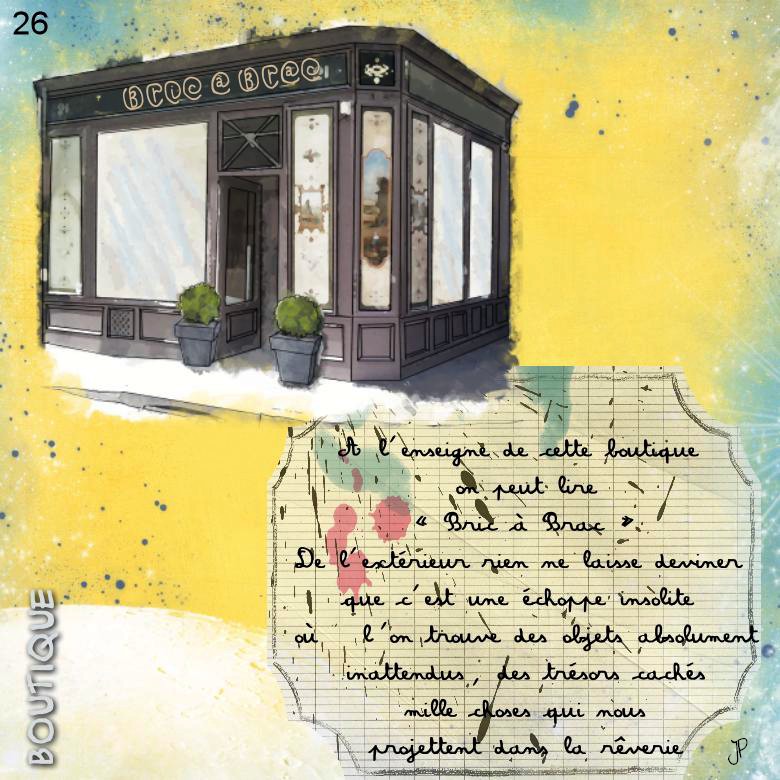 26
Bric @ Brac
A l'enseigne de cette boutique
on peut lire
« Bric à Brac »
De l'extérieur rien ne laisse deviner
que c'est une échoppe insolite
où l'on trouve des objets absolument
inattendus, des trésors cachés
mille choses qui nous
projettent dans la rêverie
JP
BOUTIQUE